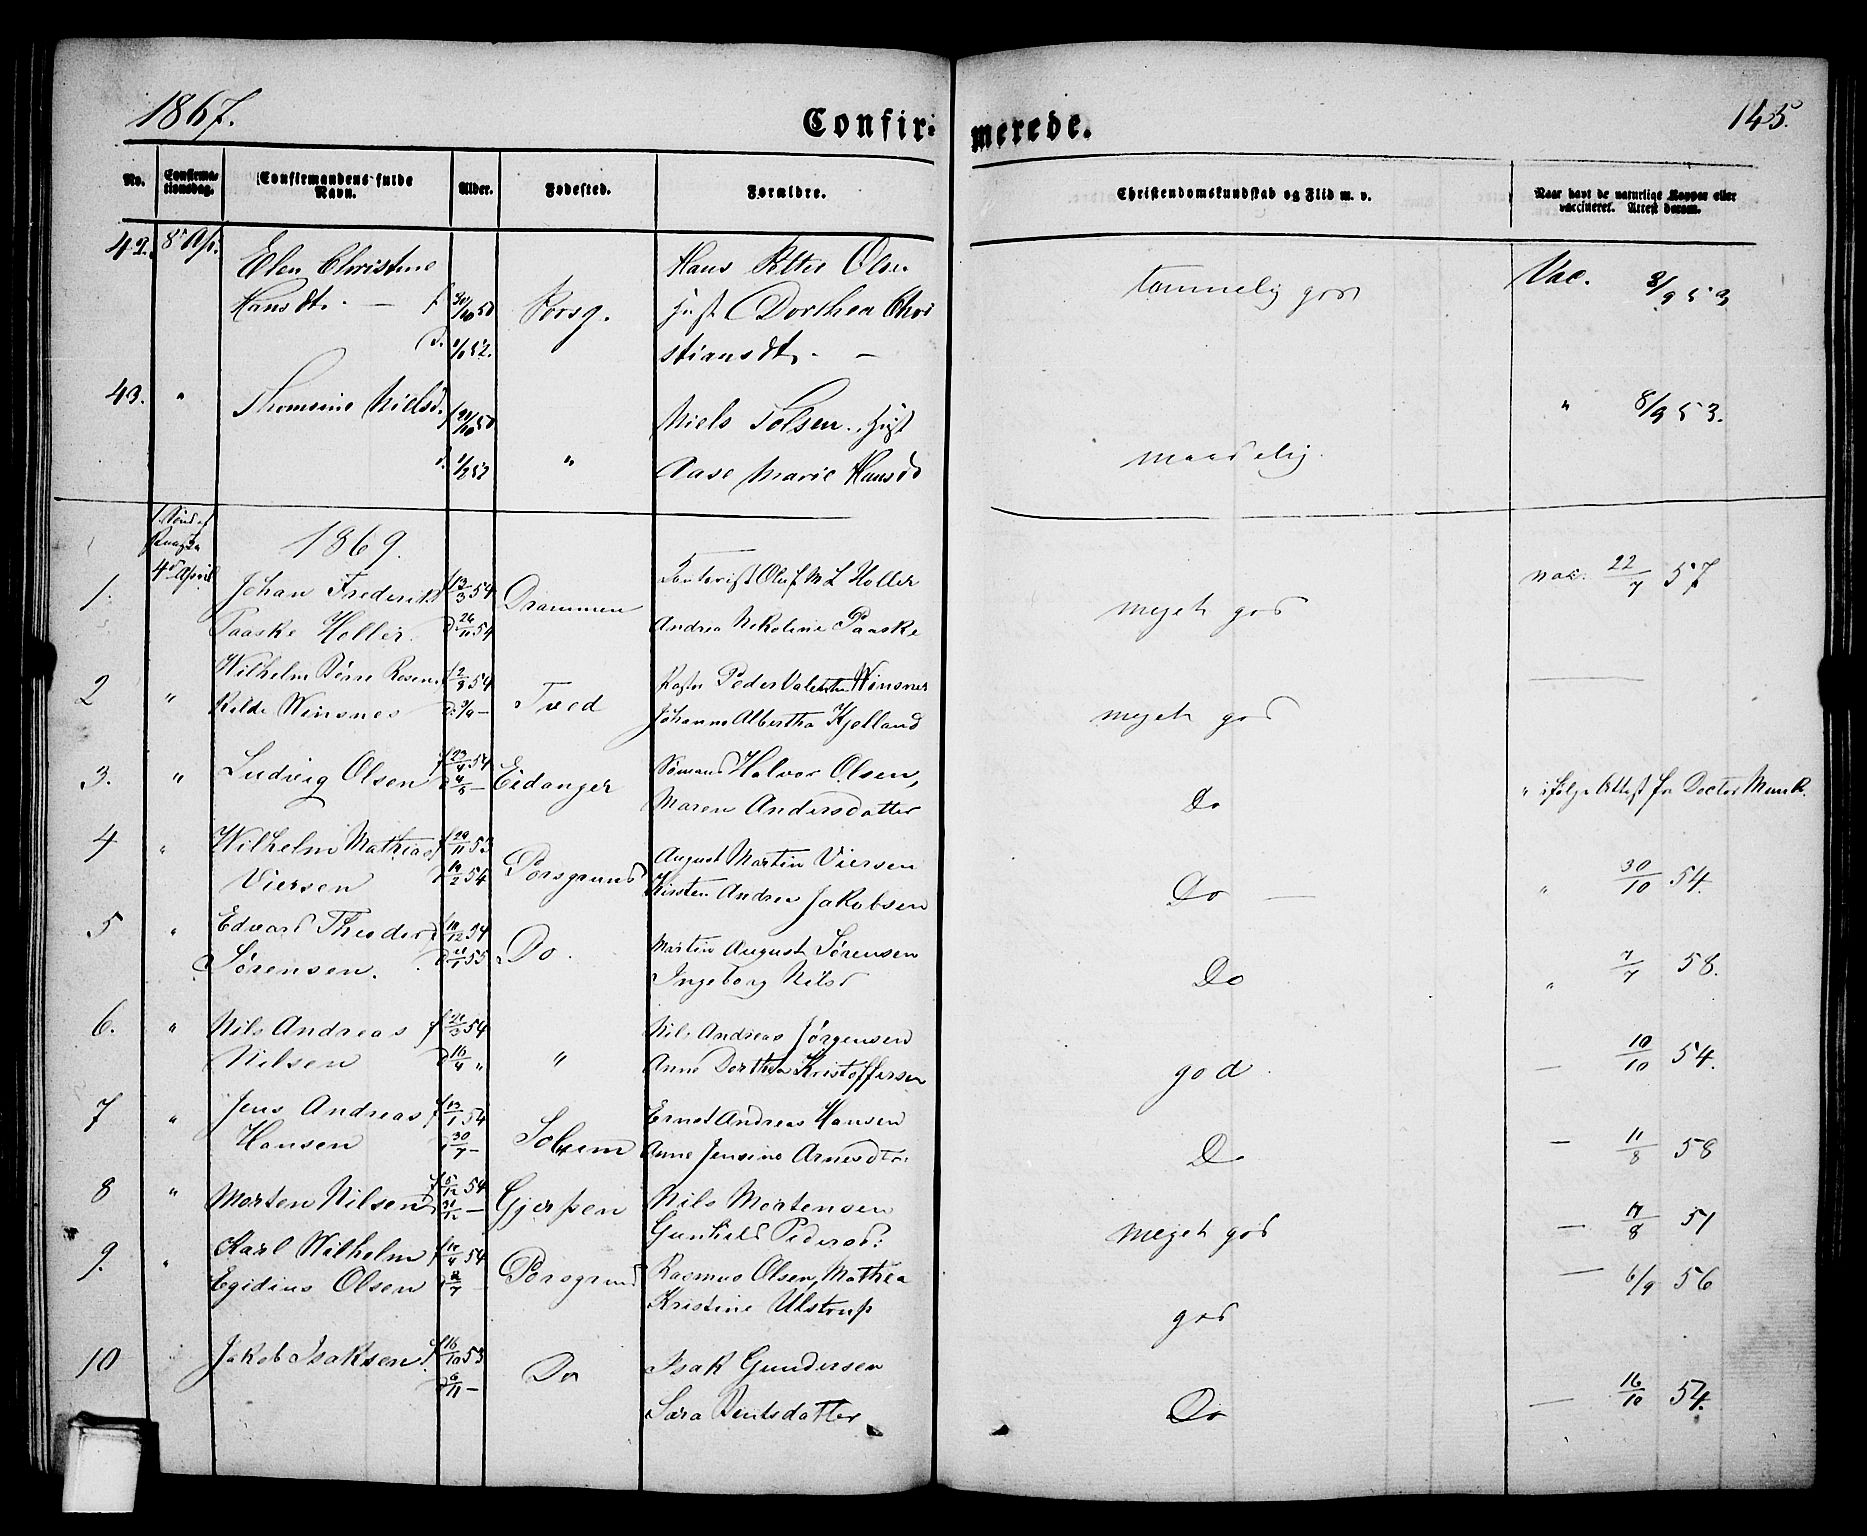 1867.
Confir-
merede.
145.
No.
Confirma-
tionsdag.
Confirmandens fulde
Navn.
Alder.
Fødested.
Forældre.
Christendomskundskab og Flid m. v.
Naar havt de naturlige Kopper eller
vaccineret. Attest derom.
42. 8de Ap. Elen Christine Hans Petter Olsen
Hansdt. — f 30/10 50 Porsg. Hust Dorthea Chri
tammelig god Vac. 8/9 53
D. 1/6 52. stiansdt. —
43. " Thomsine Nielsd. f 50 Niels Tolsen. Hust
" 8/9 53.
D. " Aase Marie Hansd
maadelig.
4de April
1869.
1. Johan Frederik f 13/3 54 Drammen Oluf M L Holler
Paaske Holler. D. 26/11 54 Andrea Nikoline Paaske
meget god vac. 22/7 57
2 " Wilhelm Rosen- f 2/3 54 Tved Peder Valentin Winsnes
kilde Winsnes Johanne Albertha Kjelland
meget god
3. " Ludvig Olsen f 23/4 54 Eidanger Sømand Halvor Olsen,
Maren Andersdatter
Do " ifølge Attest fr Doctor Munk.
4 " Wilhelm Mathias f 29/11 53 Porsgrund August Martin Viersen
Viersen D 19/2 54 Kirsten Andrea Jakobsen
Do — " 30/10 54.
5 " Edvard Theodor f 54 Do. Martin August Sørensen
Sørensen. D 55 Ingeborg Nilsd
Do " 7/7 58.
6. " Nils Andreas f 21/3 54 Nils Andreas Jørgensen
Nilsen D 16/4 " " Anne Dorthea Kristoffersen
god — 10/10 54.
7 " Jens Andreas f 13/1 54 Ernst Andreas Hansen
Hansen D 30/7 — Solum Anne Jensine Arnesdtr.
Do — 11/8 58
8 " Morten Nilsen f 5/12 54 Gjerpen Nils Mortensen
D 31/12 — Gunhild Pedersd:
meget god — 17/8 51
9. " Karl Wilhelm f 54 Porsgrund Rasmus Olsen, Mathea
Egidius Olsen Kristine Ulstrup
god — 6/9 56
10 Jakob Isaksen f. 16/10 53 Do Isak Gundersen
D 6/11 — Sara Bentsdatter
Do — 16/10 54.